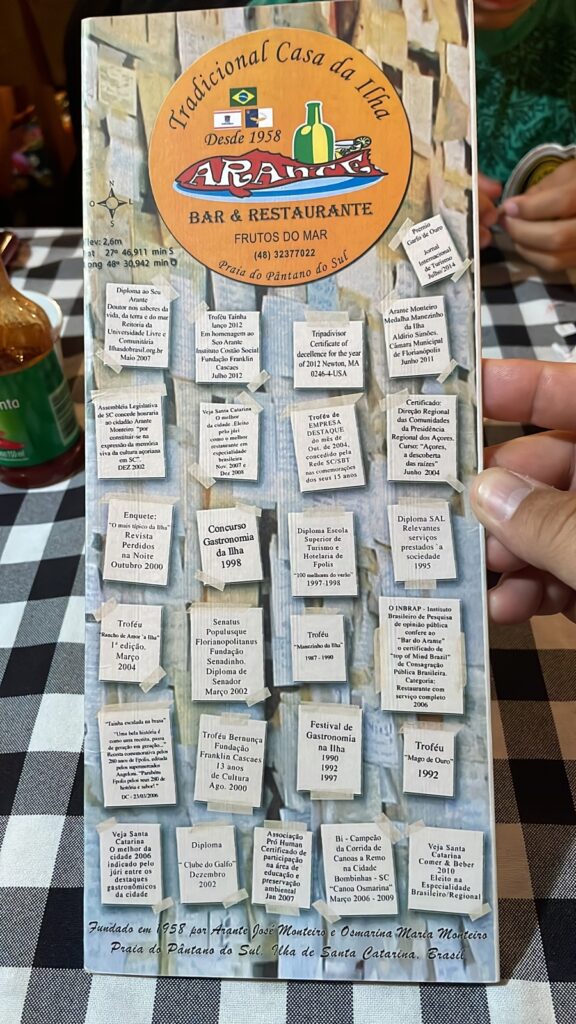 Tradicional Casa da Ilha
Desde 1958
ARANTE
BAR & RESTAURANTE
FRUTOS DO MAR
(48) 32377022
Praia do Pântano do Sul
N
O L
S
lev: 2,6m
at 27º 46,911 min S
ong 48º 30,942 min O
Premio
Garfo de Ouro
Jornal
Internacional
de Turismo
Julho/2014
Diploma ao Seu
Arante
Doutor nos saberes da
vida, da terra e do mar
Reitoria da
Universidade Livre e
Comunitária
Ilhasdobrasil.org.br
Maio 2007
Troféu Tainha
lanço 2012
Em homenagem ao
Seo Arante
Instituto Costão Social
Fundação Franklin
Cascaes
Julho 2012
Tripadvisor
Certificate of
decellence for the year
of 2012 Newton, MA
0246-4-USA
Arante Monteiro
Medalha Manezinho
da Ilha
Aldírio Simões.
Câmara Municipal
de Florianópolis
Junho 2011
Assembléia Legislativa
de SC concede honraria
ao cidadão Arante
Monteiro "por
constituir-se na
expressão da memória
viva da cultura açoriana
em SC".
DEZ 2002
Veja Santa Catarina
O melhor da
cidade .Eleito
pelo júri
como o melhor
restaurante em
especialidade
brasileira
Nov. 2007 e
Dez 2008
Troféu de
EMPRESA
DESTAQUE
do mês de
Out. de 2004,
concedido pela
Rede SC/SBT
nas comemorações
dos seus 15 anos
Certificado:
Direção Regional
das Comunidades
da Presidência
Regional dos Açores.
Curso: "Açores,
a descoberta
das raízes"
Junho 2004
Enquete:
"O mais típico da Ilha"
Revista
Perdidos
na Noite
Outubro 2000
Concurso
Gastronomia
da Ilha
1998
Diploma Escola
Superior de
Turismo e
Hotelaria de
Fpolis
"100 melhores do verão"
1997-1998
Diploma SAL
Relevantes
serviços
prestados `a
sociedade
1995
Troféu
"Rancho de Amor `a Ilha"
1ª edição.
Março
2004
Senatus
Populusque
Florianopolitanus
Fundação
Senadinho.
Diploma de
Senador
Março 2002
Troféu
"Manezinho da Ilha"
1987 - 1990
O INBRAP - Instituto
Brasileiro de Pesquisa
de opinião pública
confere ao
"Bar do Arante"
o certificado de
"top of Mind Brazil"
de Consagração
Pública Brasileira.
Categoria:
Restaurante com
serviço completo
2006
"Tainha escalada na brasa"
"Uma bela história é
como uma receita, passa
de geração em geração..."
Revista comemorativa pelos
280 anos de Fpolis, editada
pelos supermercados
Angeloni. "Parabéns
Fpolis pelos seus 280 de
história e sabor!"
DC - 23/03/2006
Troféu Bernunça
Fundação
Franklin Cascaes
13 anos
de Cultura
Ago. 2000
Festival de
Gastronomia
na Ilha
1990
1992
1997
Troféu
"Mago de Ouro"
1992
Veja Santa
Catarina
O melhor da
cidade 2006
indicado pelo
júri entre os
destaques
gastronômicos
da cidade
Diploma
"Clube do Galfo"
Dezembro
2002
Associação
Pró Human
Certificado de
participação
na área de
educação e
preservação
ambiental
Jan 2007
Bi - Campeão
da Corrida de
Canoas a Remo
na Cidade
Bombinhas - SC
"Canoa Osmarina"
Março 2006 - 2009
Veja Santa
Catarina
Comer & Beber
2010
Eleito na
Especialidade
Brasileiro/Regional
Fundado em 1958 por Arante José Monteiro e Osmarina Maria Monteiro
Praia do Pântano do Sul. Ilha de Santa Catarina. Brasil